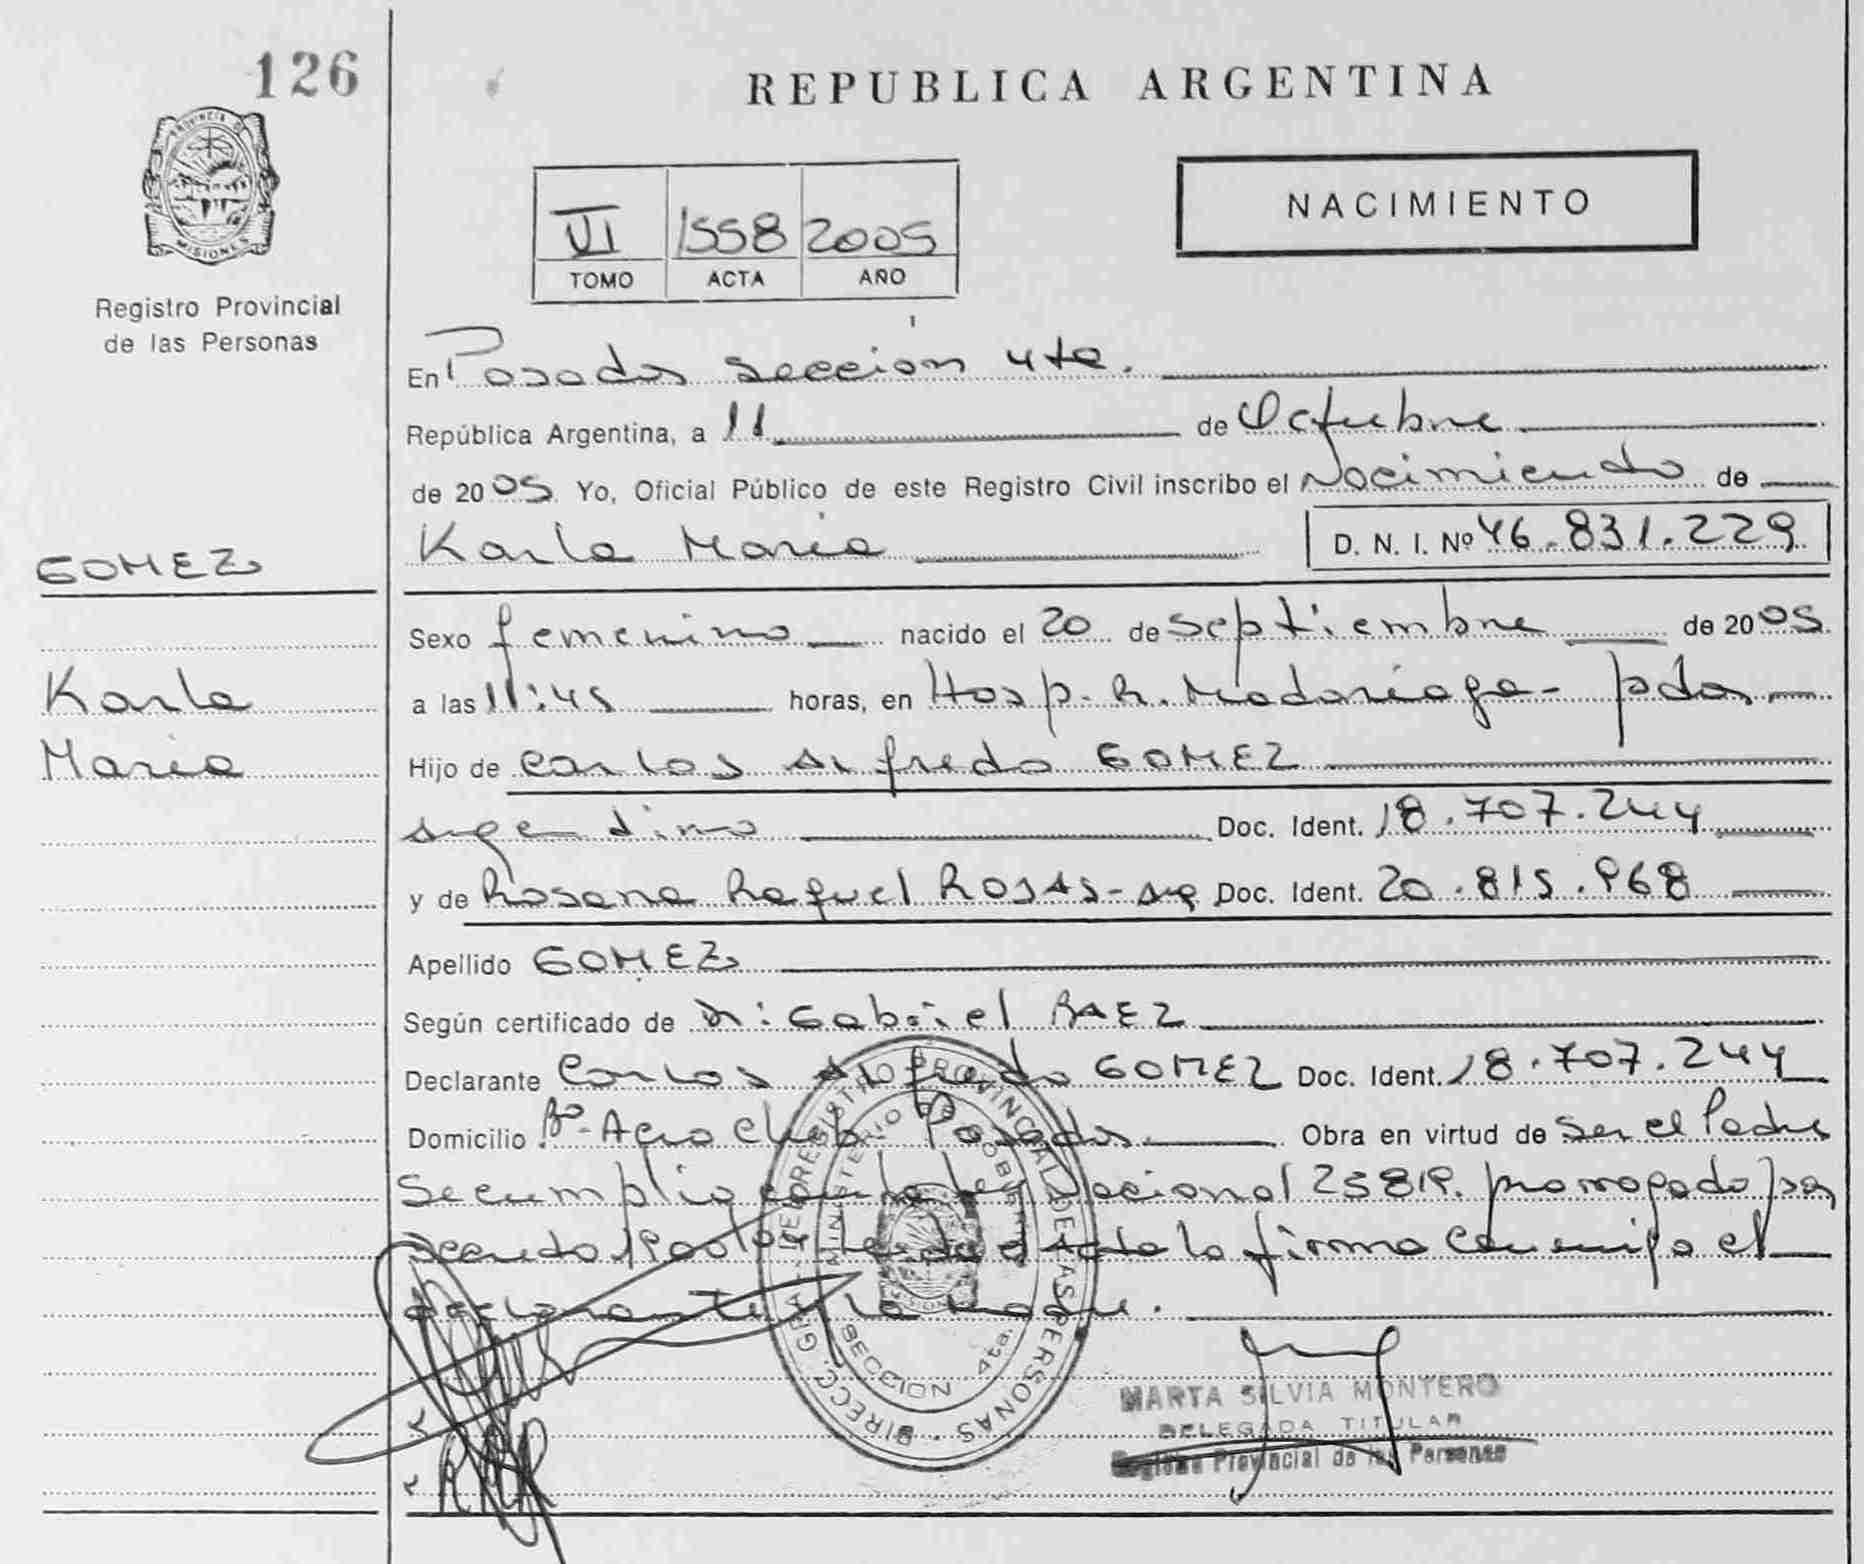 126
REPUBLICA ARGENTINA
PROVINCIA DE
MISIONES
Registro Provincial
de las Personas
NACIMIENTO
VI 1558 2005
TOMO ACTA AÑO
En Posadas sección 4ta.
República Argentina, a 11 de Octubre
de 2005 Yo, Oficial Público de este Registro Civil inscribo el Nacimiento de
Karla Maria D. N. I. Nº 46.831.229
GOMEZ
Karla
Maria
Sexo femenino nacido el 20 de septiembre de 2005
a las 11:45 horas, en Hosp. R. Madariaga - pdas
Hijo de Carlos Alfredo GOMEZ
argentino Doc. Ident. 18.707.244
y de Rosana Raquel ROJAS - arg Doc. Ident. 20.815.968
Apellido GOMEZ
Según certificado de Dr: Gabriel BAEZ
Declarante Carlos Alfredo GOMEZ Doc. Ident. 18.707.244
Domicilio Bº- Aero Club - Posadas Obra en virtud de ser el Padre
Se cumplio con la ley Nacional 25819. prorrogado por
Decreto Leida el acta la firma conmigo el
declarante y la madre.
DIRECC. GRAL. DEL REGISTRO PROVINCIAL DE LAS PERSONAS
MINISTERIO DE GOBIERNO
SECCION 4ta.
MISIONES
MARTA SILVIA MONTERO
DELEGADA TITULAR
Registro Provincial de las Personas